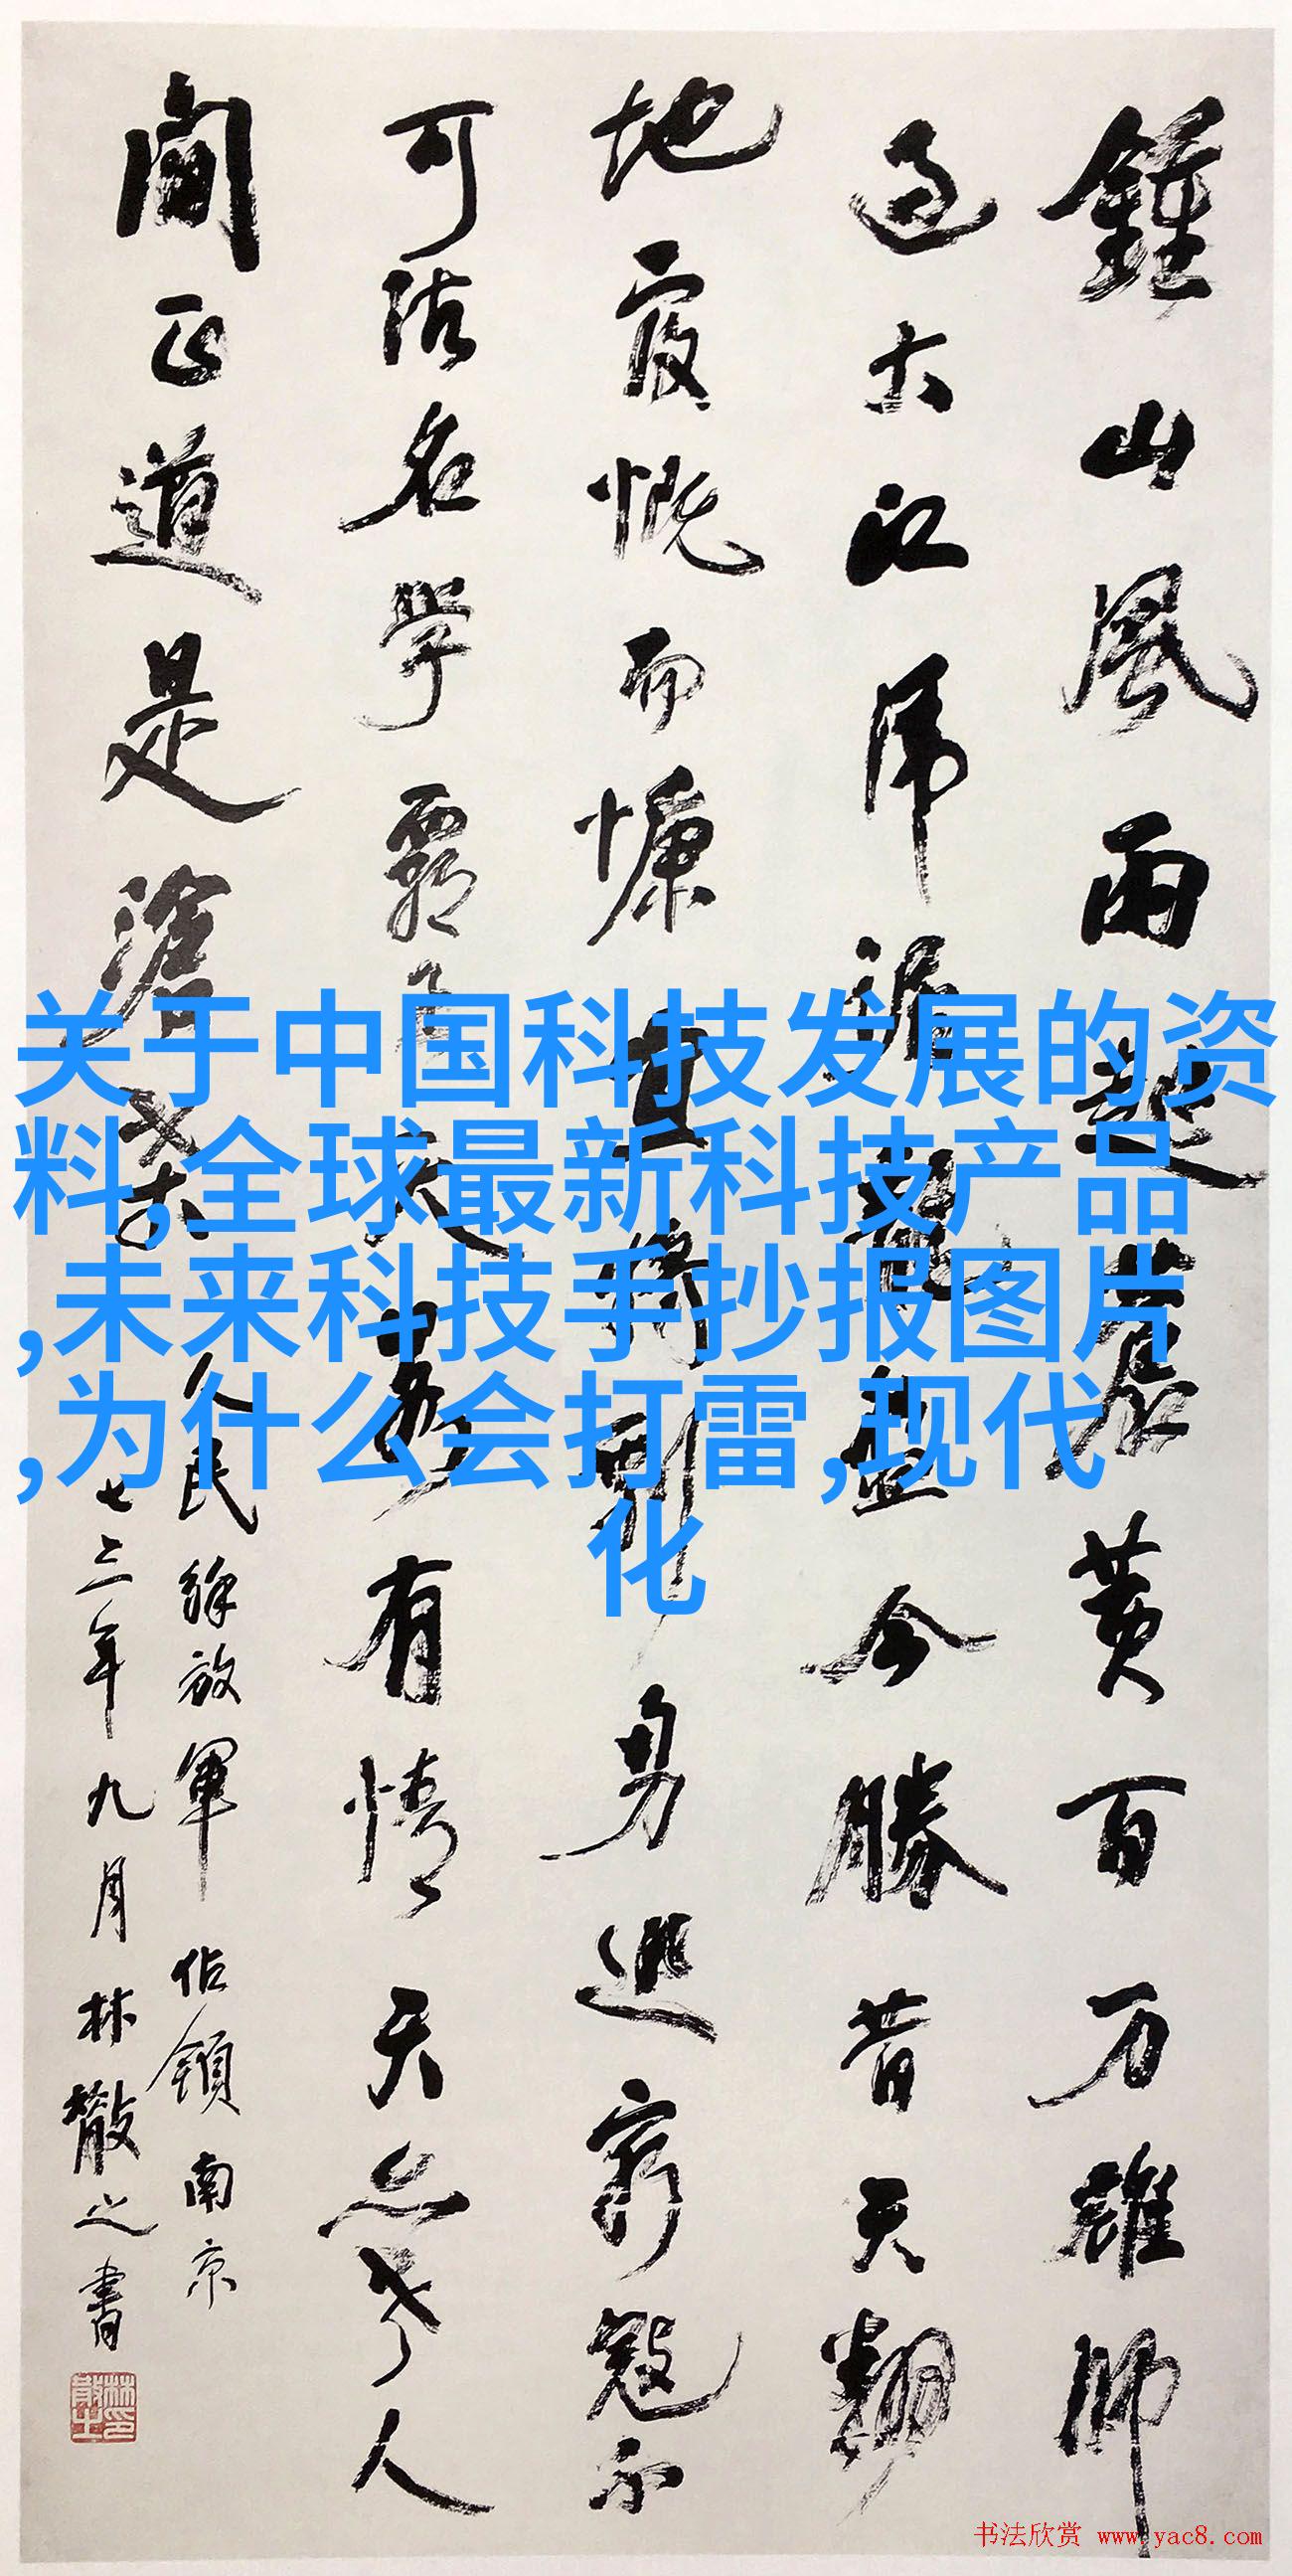 鍾山風雨起蒼黄百万雄師
过大江虎踞龍盤今勝昔天翻
地覆慨而慷宜將剩勇追窮寇不
可沽名學霸王天若有情天亦老人
間正道是滄桑
人民解放軍佔領南京
七三年九月林散之書
关于中国科技发展的资
料,全球最新科技产品
,未来科技手抄报图片
,为什么会打雷,现代
化
书法欣赏 www.yac8.com